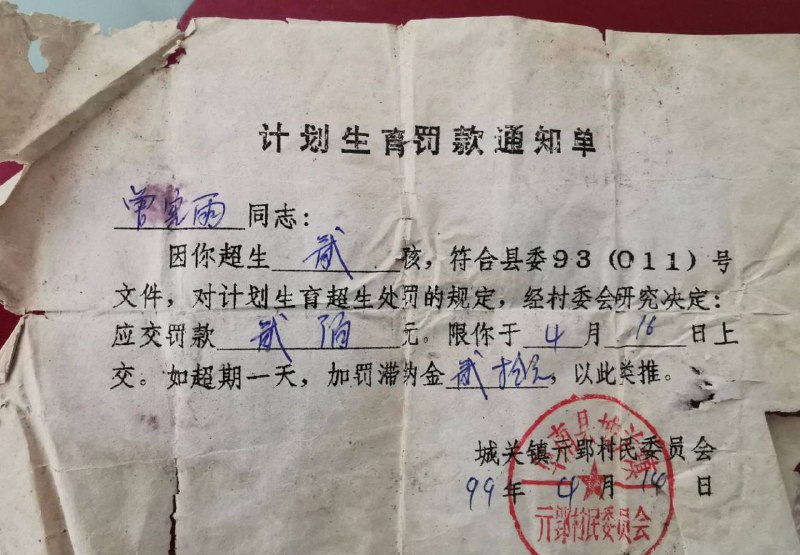 计划生育罚款通知单
曾宪雨 同志：
因你超生 贰 孩，符合县委93（011）号
文件，对计划生育超生处罚的规定，经村委会研究决定：
应交罚款 贰佰 元。限你于 4 月 16 日上
交。如超期一天，加罚滞纳金 贰拾元，以此类推。
城关镇亓郢村民委员会
99年 4 月 14 日
县城关镇
亓郢村民委员会